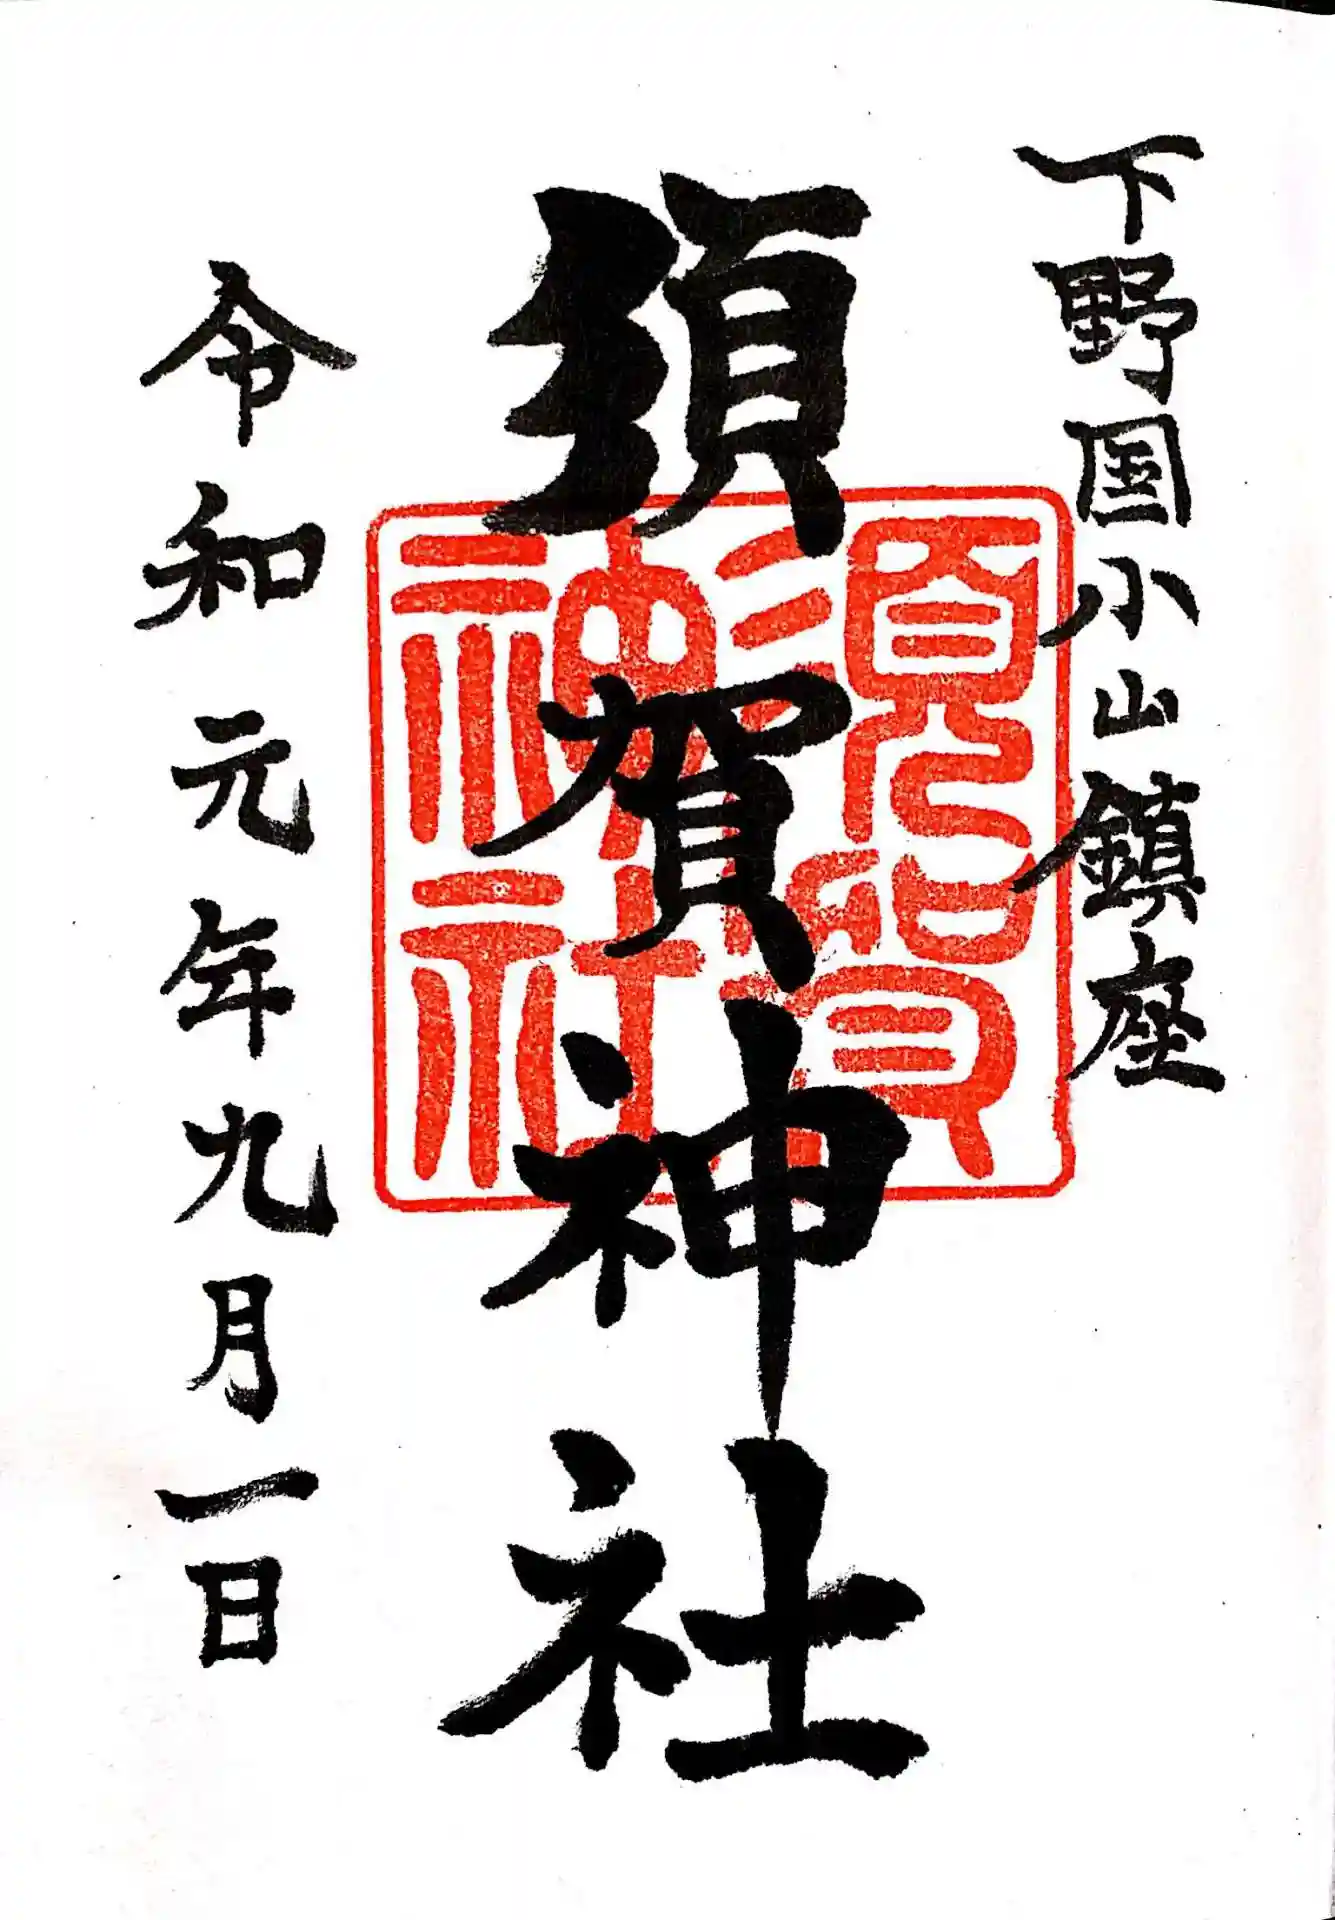 下野国小山鎮座
須賀神社
須賀神社
令和元年九月一日